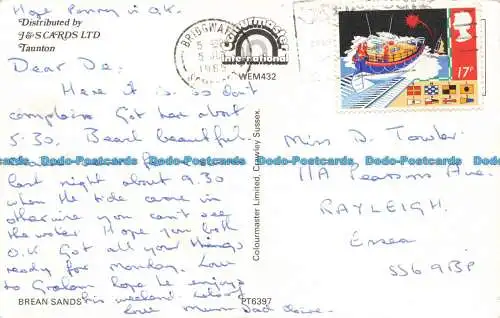 Hope Penny is O.K.
Distributed by
J&S CARDS LTD
Taunton
Dear De,
Here it is so don't
complain. Got here about
5.30. Beach beautiful
last night about 9.30
when the tide came in
otherwise you can't see
the water. Hope you both
O.K. Got all your things
ready for Monday. Love
to Graham hope he enjoys
his weekend.
Love Mum Dad
BREAN SANDS
PT6397
BRIDGWATER
Colourmaster
International
WEM432
Colourmaster Limited, Crawley Sussex.
17P
Miss D. Towler
11A Pearsons Ave.
RAYLEIGH.
Essex
SS6 9BP
Dodo-Postcards Dodo-Postcards Dodo-Postcards Dodo-Postcards
Dodo-Postcards Dodo-Postcards Dodo-Postcards Dodo-Postcards